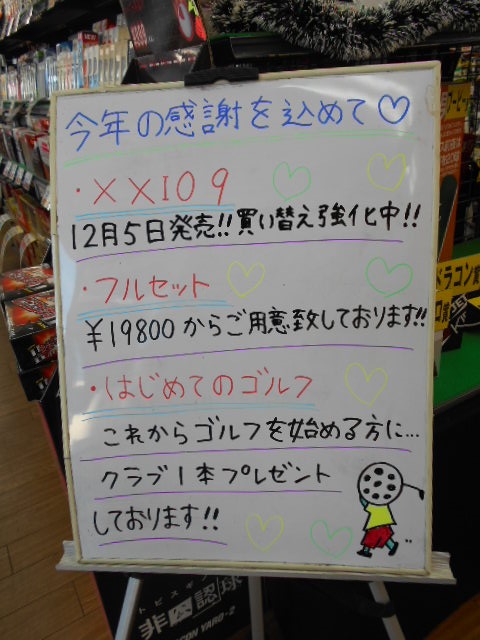 今年の感謝を込めて♡
・XXIO 9
12月5日発売!!買い替え強化中!!
・フルセット
¥19800からご用意致しております!!
・はじめてのゴルフ
これからゴルフを始める方に…
クラブ1本プレゼント
しております!!
ドラコン賞
非公認球